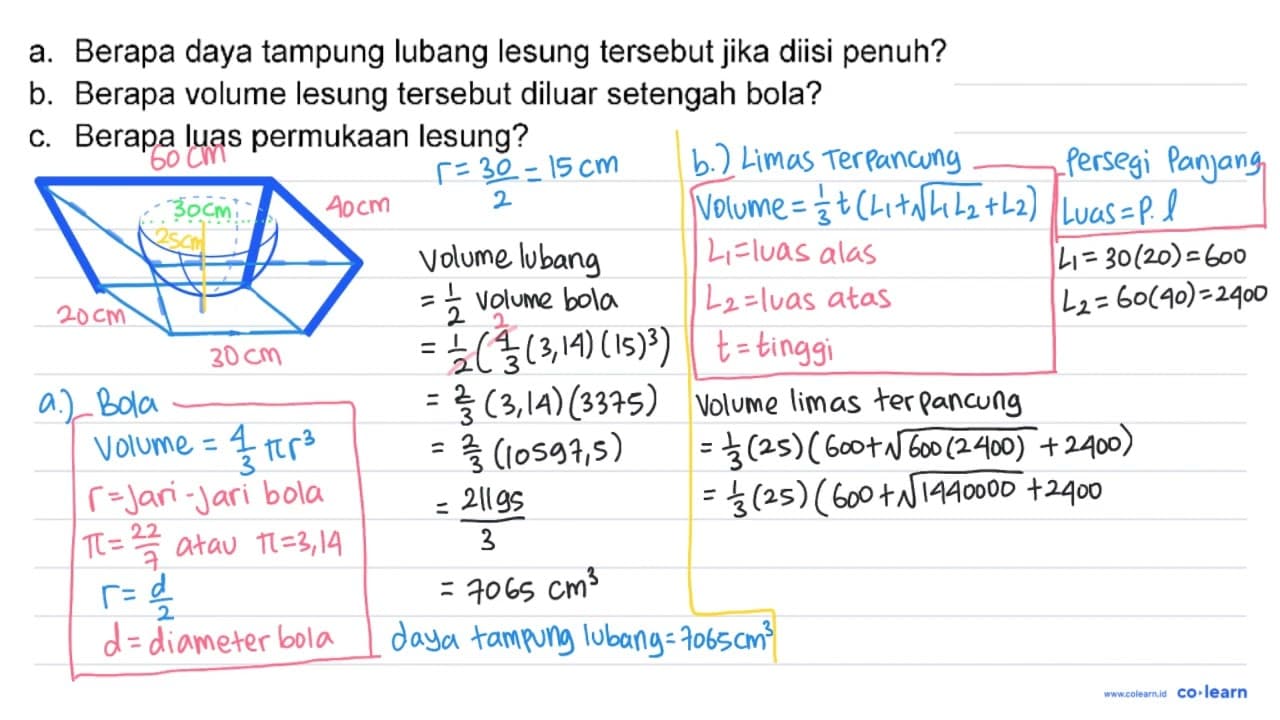 a. Berapa daya tampung lubang lesung tersebut jika diisi penuh?
b. Berapa volume lesung tersebut diluar setengah bola?
c. Berapa luas permukaan lesung?
60 cm
40 cm
30 cm
25 cm
20 cm
30 cm
a.) Bola
Volume = 4/3 πr³
r = Jari-Jari bola
π = 22/7 atau π = 3,14
r = d/2
d = diameter bola
r = 30/2 = 15 cm
Volume lubang
= 1/2 volume bola
= 1/2 (4/3 (3,14) (15)³) 2
= 2/3 (3,14) (3375)
= 2/3 (10597,5)
= 21195/3
= 7065 cm³
daya tampung lubang = 7065 cm³
b.) Limas Terpancung
Volume = 1/3 t (L1 + √L1 L2 + L2)
L1 = luas alas
L2 = luas atas
t = tinggi
Persegi Panjang
Luas = P. l
L1 = 30(20) = 600
L2 = 60(40) = 2400
Volume limas terpancung
= 1/3 (25) (600 + √600(2400) + 2400)
= 1/3 (25) (600 + √1440000 + 2400
www.colearn.id co·learn